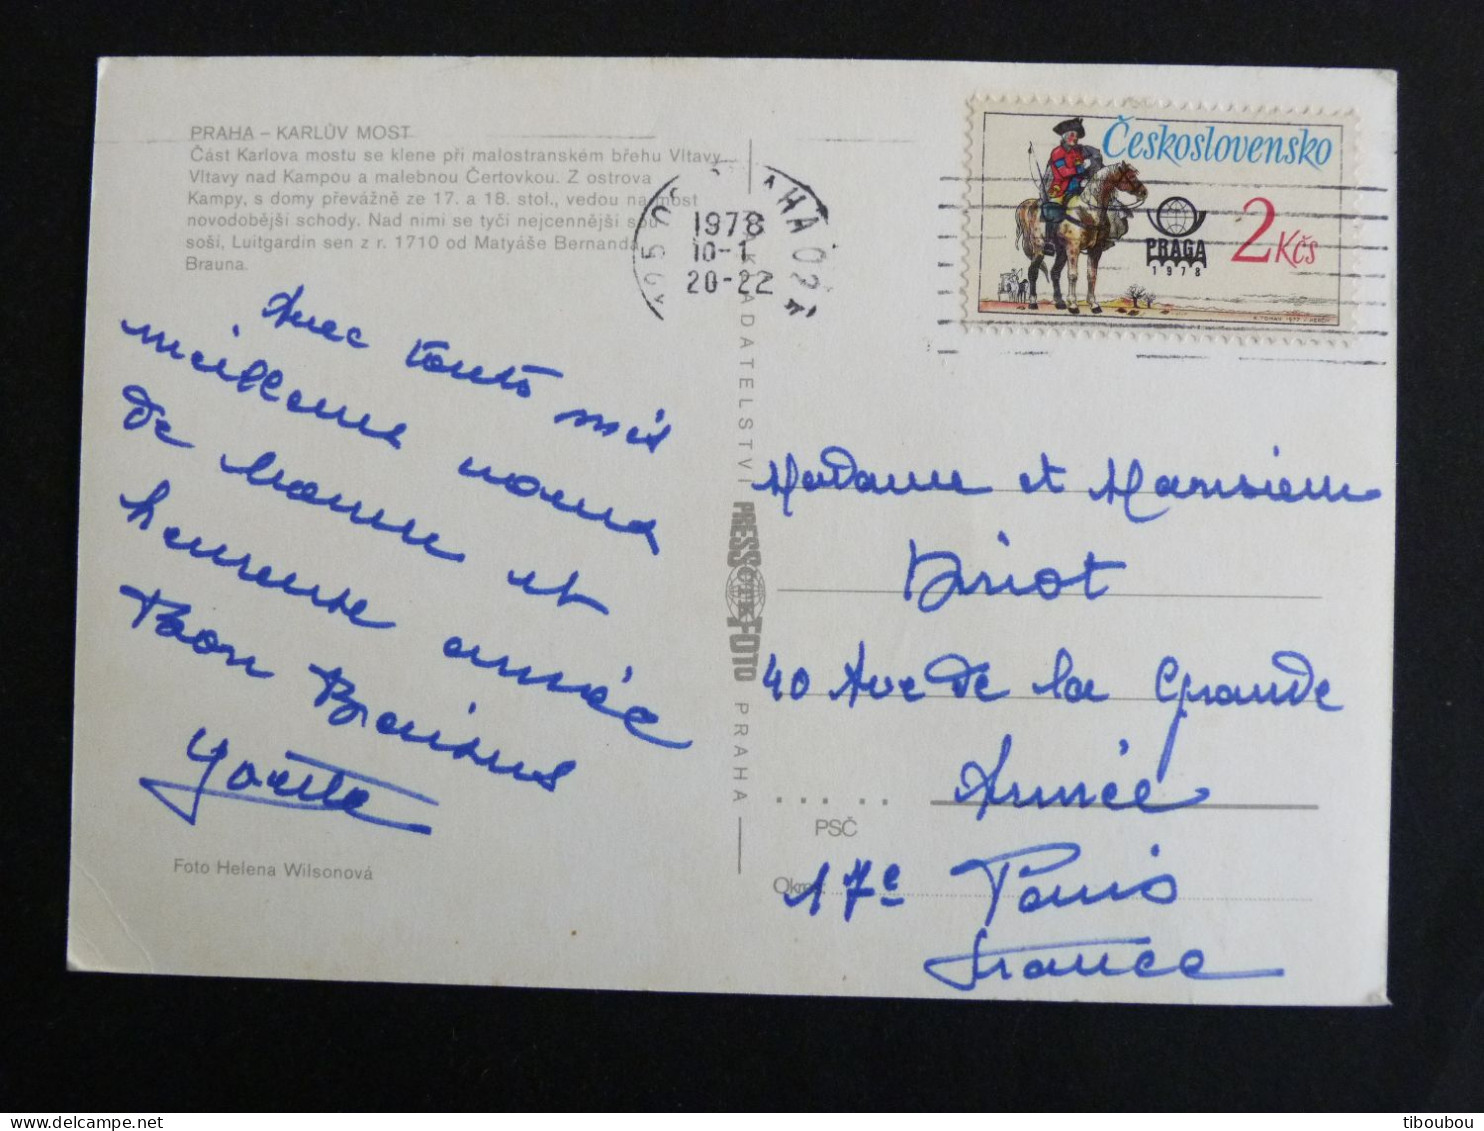 PRAHA – KARLŮV MOST
Část Karlova mostu se klene při malostranském břehu Vltavy
Vltavy nad Kampou a malebnou Čertovkou. Z ostrova
Kampy, s domy převážně ze 17. a 18. stol., vedou na most
novodobější schody. Nad nimi se tyčí nejcennější sou
soší, Luitgardin sen z r. 1710 od Matyáše Bernarda
Brauna.
Avec tous mes
meilleurs vœux
de bonne et
heureuse année
Bon Baisers
Yvette
Foto Helena Wilsonová
1978
10-1
20-22
PRAHA 02
NAKLADATELSTVÍ PRESSFOTO PRAHA
ČTK
Československo
PRAGA
1978
2 Kčs
Madame et Monsieur
Briot
40 Ave de la Grande
Armée
PSČ
Okres
17e Paris
France
tiboubou